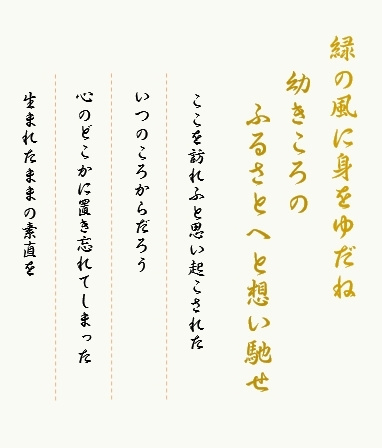 緑の風に身をゆだね
幼きころの
ふるさとへと想い馳せ
ここを訪れふと思い起こされた
いつのころからだろう
心のどこかに置き忘れてしまった
生まれたままの素直を